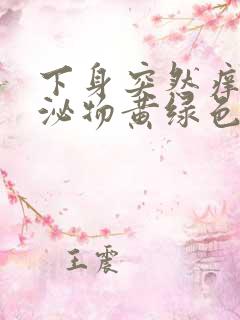 下身突然痒
泌物黄绿色
王震